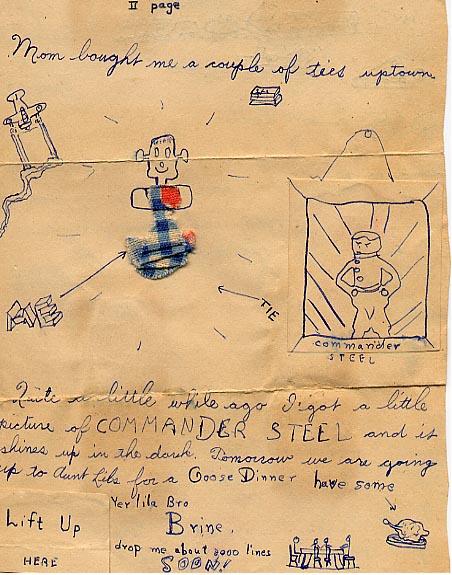 II page
Mom bought me a couple of ties uptown
TIE
DAVE
commander
STEEL
Quite a little while ago I got a little
picture of COMMANDER STEEL and it
shines up in the dark. Tomorrow we are going
up to Aunt Libs for a Goose Dinner have some
Yer lila Bro
Brine.
drop me about 3000 lines
SOON!
Lift Up
HERE